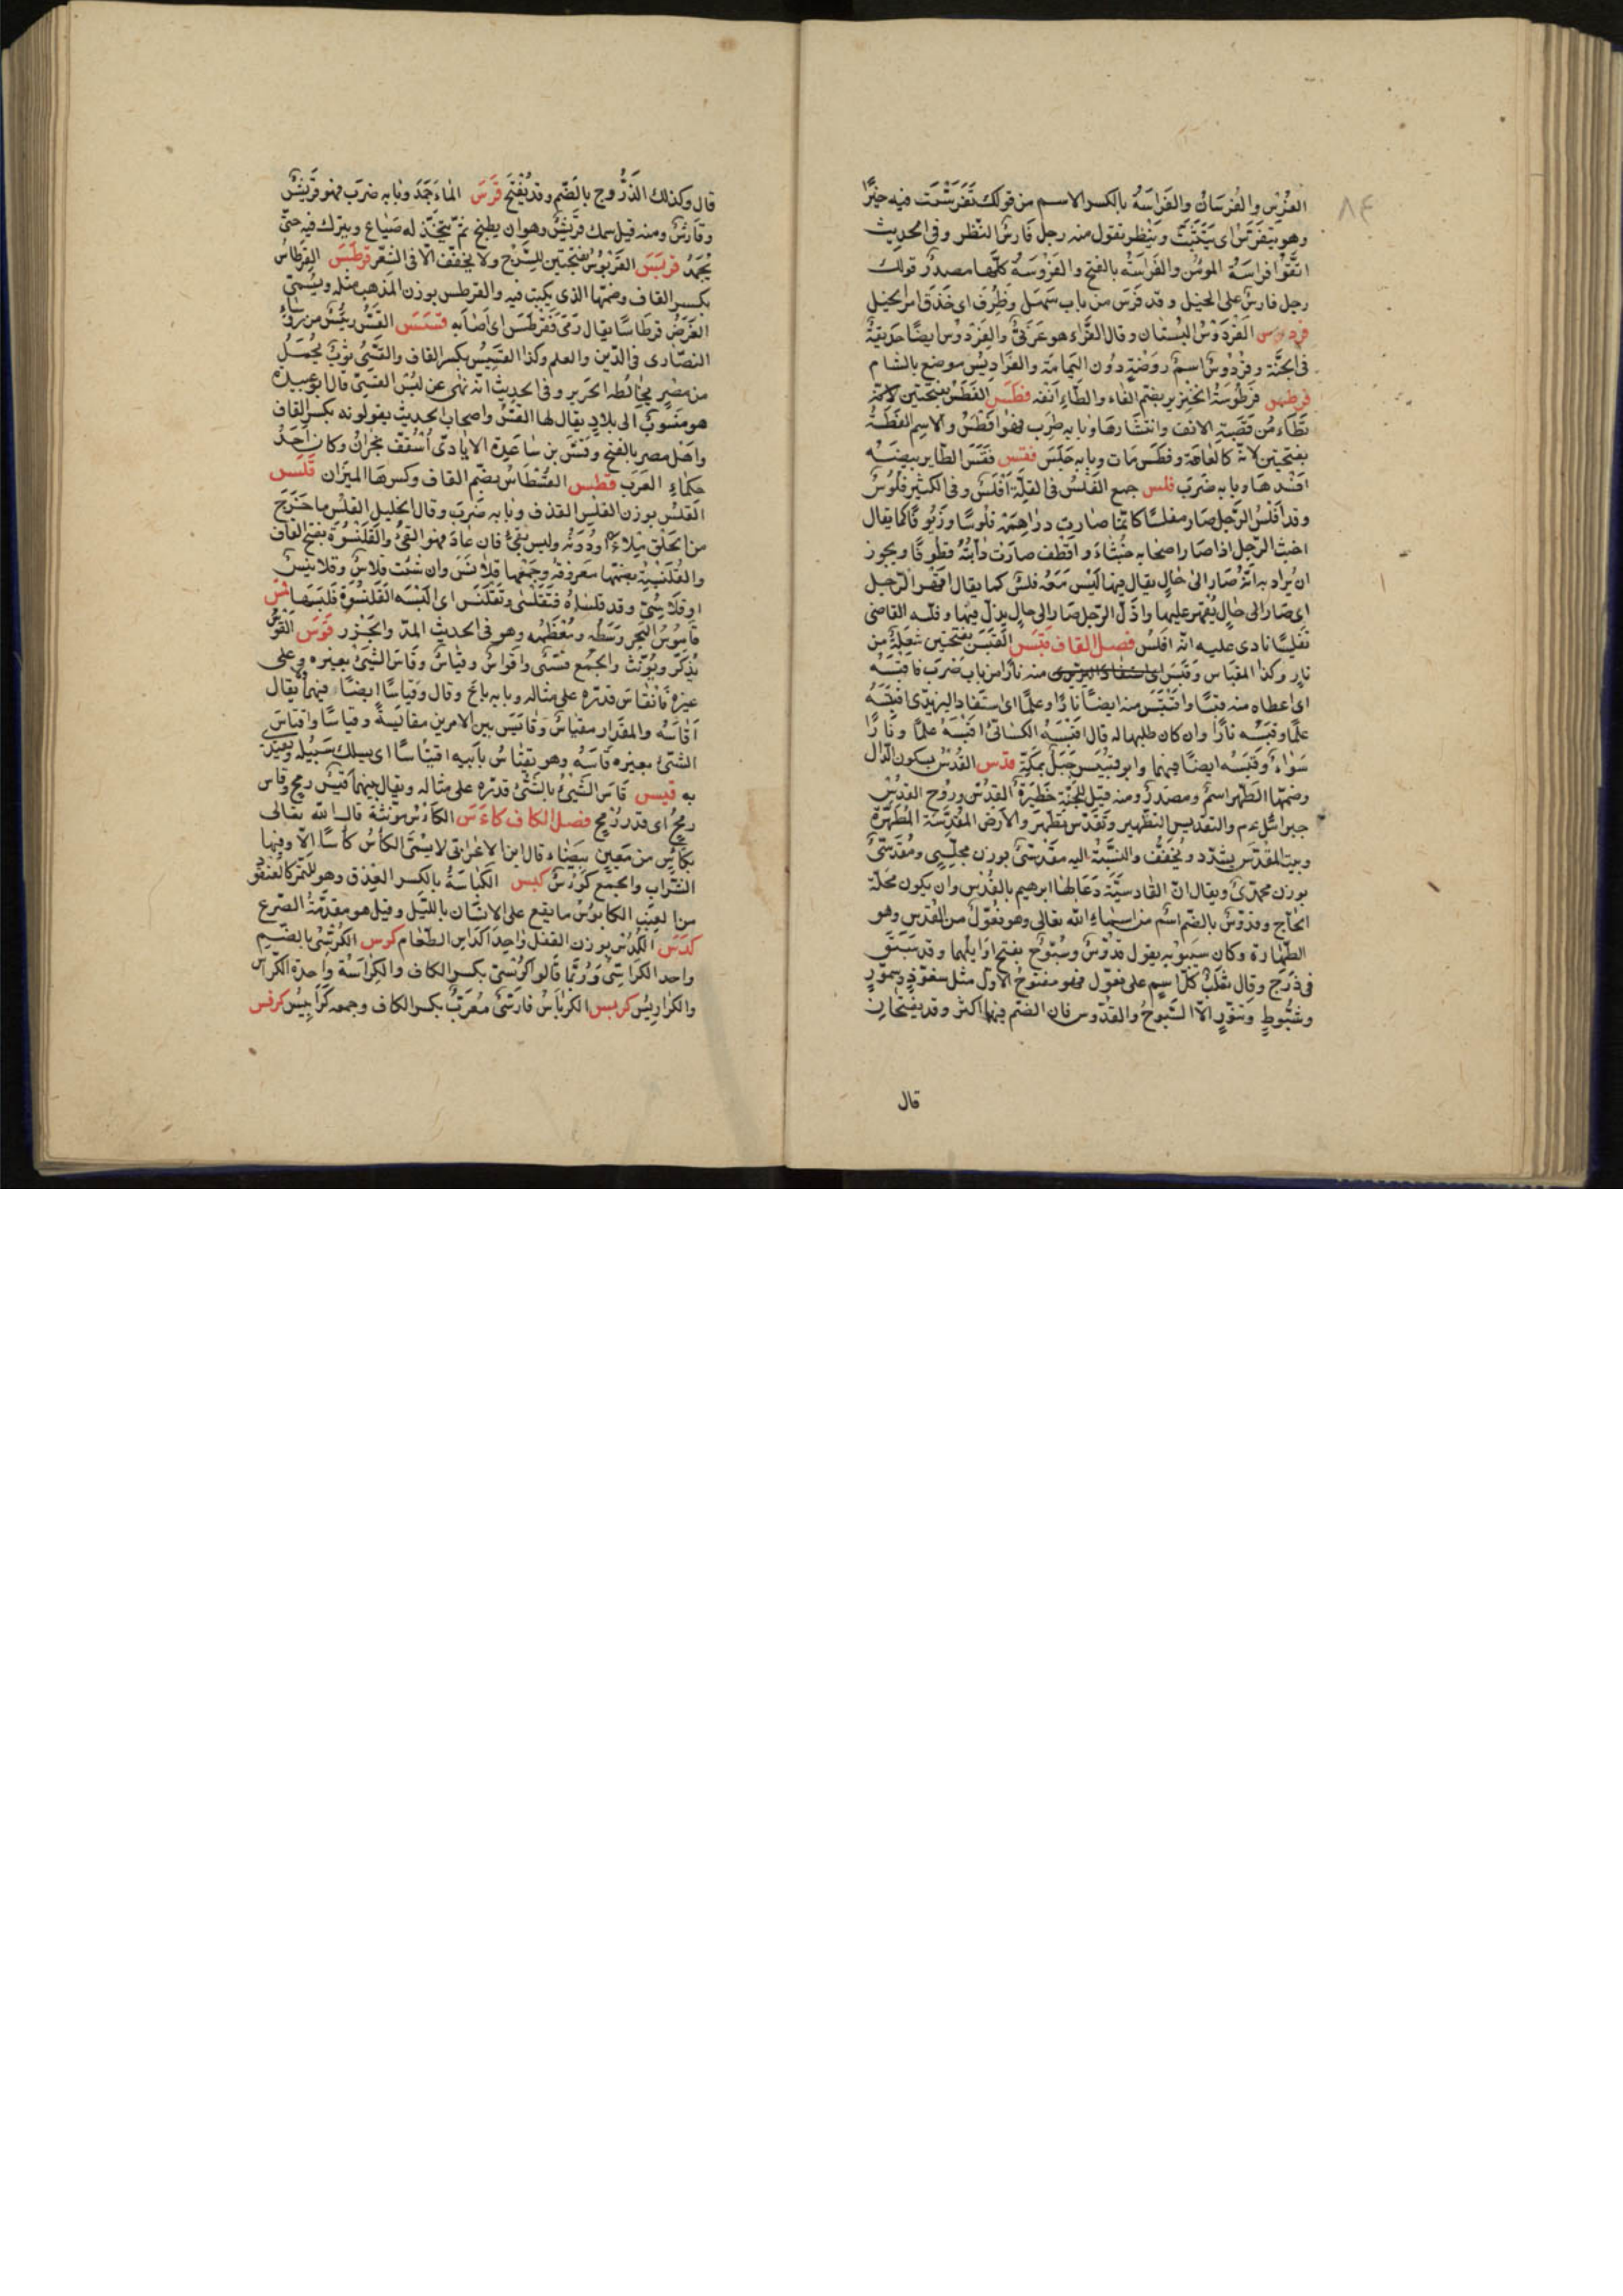 ٨٤
الفُرْس والفُرسَانُ والفَرَاسَةُ بالكسر الاسم من قولك تَفَرَسْتُ فيه خيرًا
وهو يتفَرَّس اى يتثبّتُ وينظر تقول منه رجل فَارسُ النّظر وفى الحديث
اتّقوا فراسَةَ المؤمن والفَرَاسَةُ بالفتح والفُرُوسَةُ كلّها مصدرُ قولك
رجل فارسٌ على الخيل وقد فَرُسَ من باب سَهُلَ وظَرُفَ اى حَذَقَ امر الخيل
فردوس الفِرْدَوْسُ البُستان وقال الفَرَّاء هو عَرَبىٌّ والفِرْدَوْس ايضًا حديقة
فى الجنّة وفِرْدَوْسُ اسمُ رَوْضَةٍ دُون اليَمامَة والفَرَادِيسُ موضع بالشام
فرطس فُرْطُوسَةُ الخنزير بضمّ الفاء والطاء اَنفه فطس الفَطَسُ بفتحتين
تَطَامُن قَصَبَة الانف وانتشارهَا وبابه طَرِبَ فهُوَ افْطَسُ والاسم الفَطَسَةُ
بفتحتين لانّه كالعَاهَة وفَطَسَ مَات وبابه جَلَسَ فقس فَقَسَ الطاير بيضَه
افسَدهَا وبابه ضَرَبَ فلس جمع الفَلْسُ فى القلّة اَفْلُسٌ وفى الكثير فُلُوسٌ
وقد اَفْلَسَ الرّجل صَار مفلسًا كانّما صَارت دراهِمُهُ فلُوسًا وزُيُوفًا كما يقال
اخبثَ الرّجل اذا صَار اصحَابه خُبَثَاءَ واَقْطَفَ صَارَتْ دابّتُهُ قَطُوفًا ويجوز
ان يُرادَ به انّهُ صَارَ الى حَالٍ يقال فيها لَيْسَ مَعَهُ فلسٌ كما يقال اقهَرَ الرّجل
اى صَارَ الى حَالٍ يُقهر عليها واذلّ الرّجل صَار الى حالٍ يذلّ فيها وفلّسه القاضى
تفليسًا نادى عليه انّه افلسَ فصل القاف قبس القَبَسُ بفتحتين شُعلَةٌ من
نار وكذا المقبَاس وقَبَسَ منه نَارًا من باب ضَرَبَ فاقبَسَهُ
اى اعطاه منه قبَسًا واقتَبَسَ منه ايضًا نَارًا وعلمًا اى استَفاد اليزيدى اقبَسَهُ
علمًا وقبَسَه نارًا وان كان طلبها له قال اقبَسَهُ الكسَائىّ اقبَسَهُ علمًا ونَارًا
سَوَاءٌ وقَبَسَه ايضًا فيهما وابو قُبَيْس جَبَلٌ بمكّة قدس القُدْسُ بسكون الدّال
وضمّها الطّهر اسمٌ ومصدرٌ ومنه قيل للجنّة حَظيرةُ القُدُس ورُوحُ القدُس
جبرائيل عم والتقديس التطهير وتقَدّس تطهّر والارض المقَدَّسة المُطَهّرَة
وبيت المقدس يشدّد ويُخفّفُ والنسبَةُ اليه مَقْدِسىّ بوزن مجلسِىّ ومُقَدَّسىّ
بوزن محمّدىّ ويقال انّ القادسيّةَ دَعَا لها ابرهيم بالقُدس وان يكون محَلّة
الحَاجّ وقدّوسٌ بالضّم اسم من اسماءِ الله تعالى وهو فعّولٌ من القُدس وهو
الطّهارة وكان سيبويه يقول قَدّوسٌ وسَبّوحٌ بفتح اوَايلهما وقد سَبَقَ
فى ذَرَحَ وقال ثعلَبٌ كلّ اسم على فعّول فهو مفتوحُ الاوّل مثل سفّود وسمّورٍ
وشبّوطٍ وتنّورٍ الاّ السّبوحُ والقدّوس فان الضّم فيهما اكثر وقد يفتحَان
قال
قال وكذلك الذّرُّوح بالضّم وقد يُفْتَحُ قَرَسَ الماءُ جَمَدَ وبابه ضرَبَ فهو قَرِيسٌ
وقَارسٌ ومنه قيل سمك قَريسٌ وهو ان يطبخ ثمّ يتّخذ له صِبَاغ ويترك فيه حتّى
يُجمد قربس القَرَبُوسُ بفتحتين للسَّرْج ولا يخفّف الاّ فى الشعر قرطس القِرطَاسُ
بكسر القاف وضمّها الذى يكتب فيه والقرطس بوزن المذهب مثله ويُسمّى
الغَرَضُ قرطَاسًا يقال رَمَى فَقَرْطَسَ اى اَصَابَه قسس القَسُّ رئيس من رؤساء
النصَارى فى الدّين والعلم وكذا القِسِّيسُ بكسر القاف والقَسِّىُّ ثوبٌ يُحمَلُ
من مصر يُخَالطه الحَرير وفى الحديث انّه نهى عن لبْسِ القسّىّ قال ابو عبيدة
هو منسُوبٌ الى بلادٍ يقال لها القَسُّ واصحاب الحديث يقولونه بكسر القاف
واَهْل مصر بالفتح وقُسُّ بن سَاعِدة الايادىّ اُسْقُفُّ نجرَانَ وكان اَحَدُ
حكماءِ العَرَب قسطس القُسْطَاسُ بضمّ القاف وكسرهَا الميزَان قلس
القَلْسُ بوزن الفلس القذف وبابه ضَرَبَ وقال الخليل القلْس ما خَرَجَ
من الحلق مِلءَ الفم او دُونَهُ وليس بقَىْءٍ فان عَادَ فهو القَىْءُ والقَلَنْسُوَة بفتح القاف
والقُلَنْسِيَةُ بضمّها معروفة وجمعها قلاَنسُ وان شئت قلاسٌ وقلانيسُ
او قلاسىّ وقد قلسَاهُ فتَقَلْسَى وتَقَلْنَسَ اى اَلبَسَه القَلَنْسُوَةَ فلَبسَهَا قمس
قَامُوسُ البَحر وَسَطُه ومُعْظَمُه وهو فى الحديث المدّ والجَزْر قوس القَوْسُ
يُذكّر ويُؤنّث والجَمْع قِسِىٌّ واقواسٌ وقيَاسٌ وقَاسَ الشَىءَ بغيره وعلى
غيره فانقَاسَ قدّره على مثاله وبابه باعَ وقال وقيَاسًا ايضًا فيهما يقال
اَقَاسَهُ والمقدَار مقيَاسٌ وقَايَسَ بين الامرين مقايَسةً وقياسًا واقتاسَ
الشىءَ بغيره قَاسَهُ وهو يقتَاسُ بابيه اقتيَاسًا اى يسلك سَبيله ويقتَدى
به قيس قَاسَ الشَىءَ بالشَىءِ قدّره على مثاله ويقال بينهما قِيْسُ رمح وقاسُ
رمحٍ اى قدر رُمح فصل الكاف كاس الكأسُ مؤنّثة قال الله تعالى
بكأسٍ من مَعينٍ بيضَاء قال ابن الاعرابىّ لا يسَمّى الكأسُ كأسًا الاّ وفيها
الشَّراب والجمع كؤوسٌ كبس الكِبَاسَةُ بالكسر العِذق وهو للتمر كالعُنقُود
من العنَب الكابُوسُ ما يقع على الانسَان بالليل وقيل هو مقدّمَةُ الصّرع
كدس الكُدْسُ بوزن القفل وَاحِدُ اكدَاس الطّعام كرس الكُرْسىُّ بالضّم
واحد الكرَاسىّ ورُبّما قالوا كِرْسىّ بكسر الكاف والكُرَّاسَةُ واحدة الكُرّاس
والكرَاريسُ كربس الكرْبَاسُ فارسىّ مُعَرَّبٌ بكسر الكاف وجمعه كَرَابيسُ كرفس